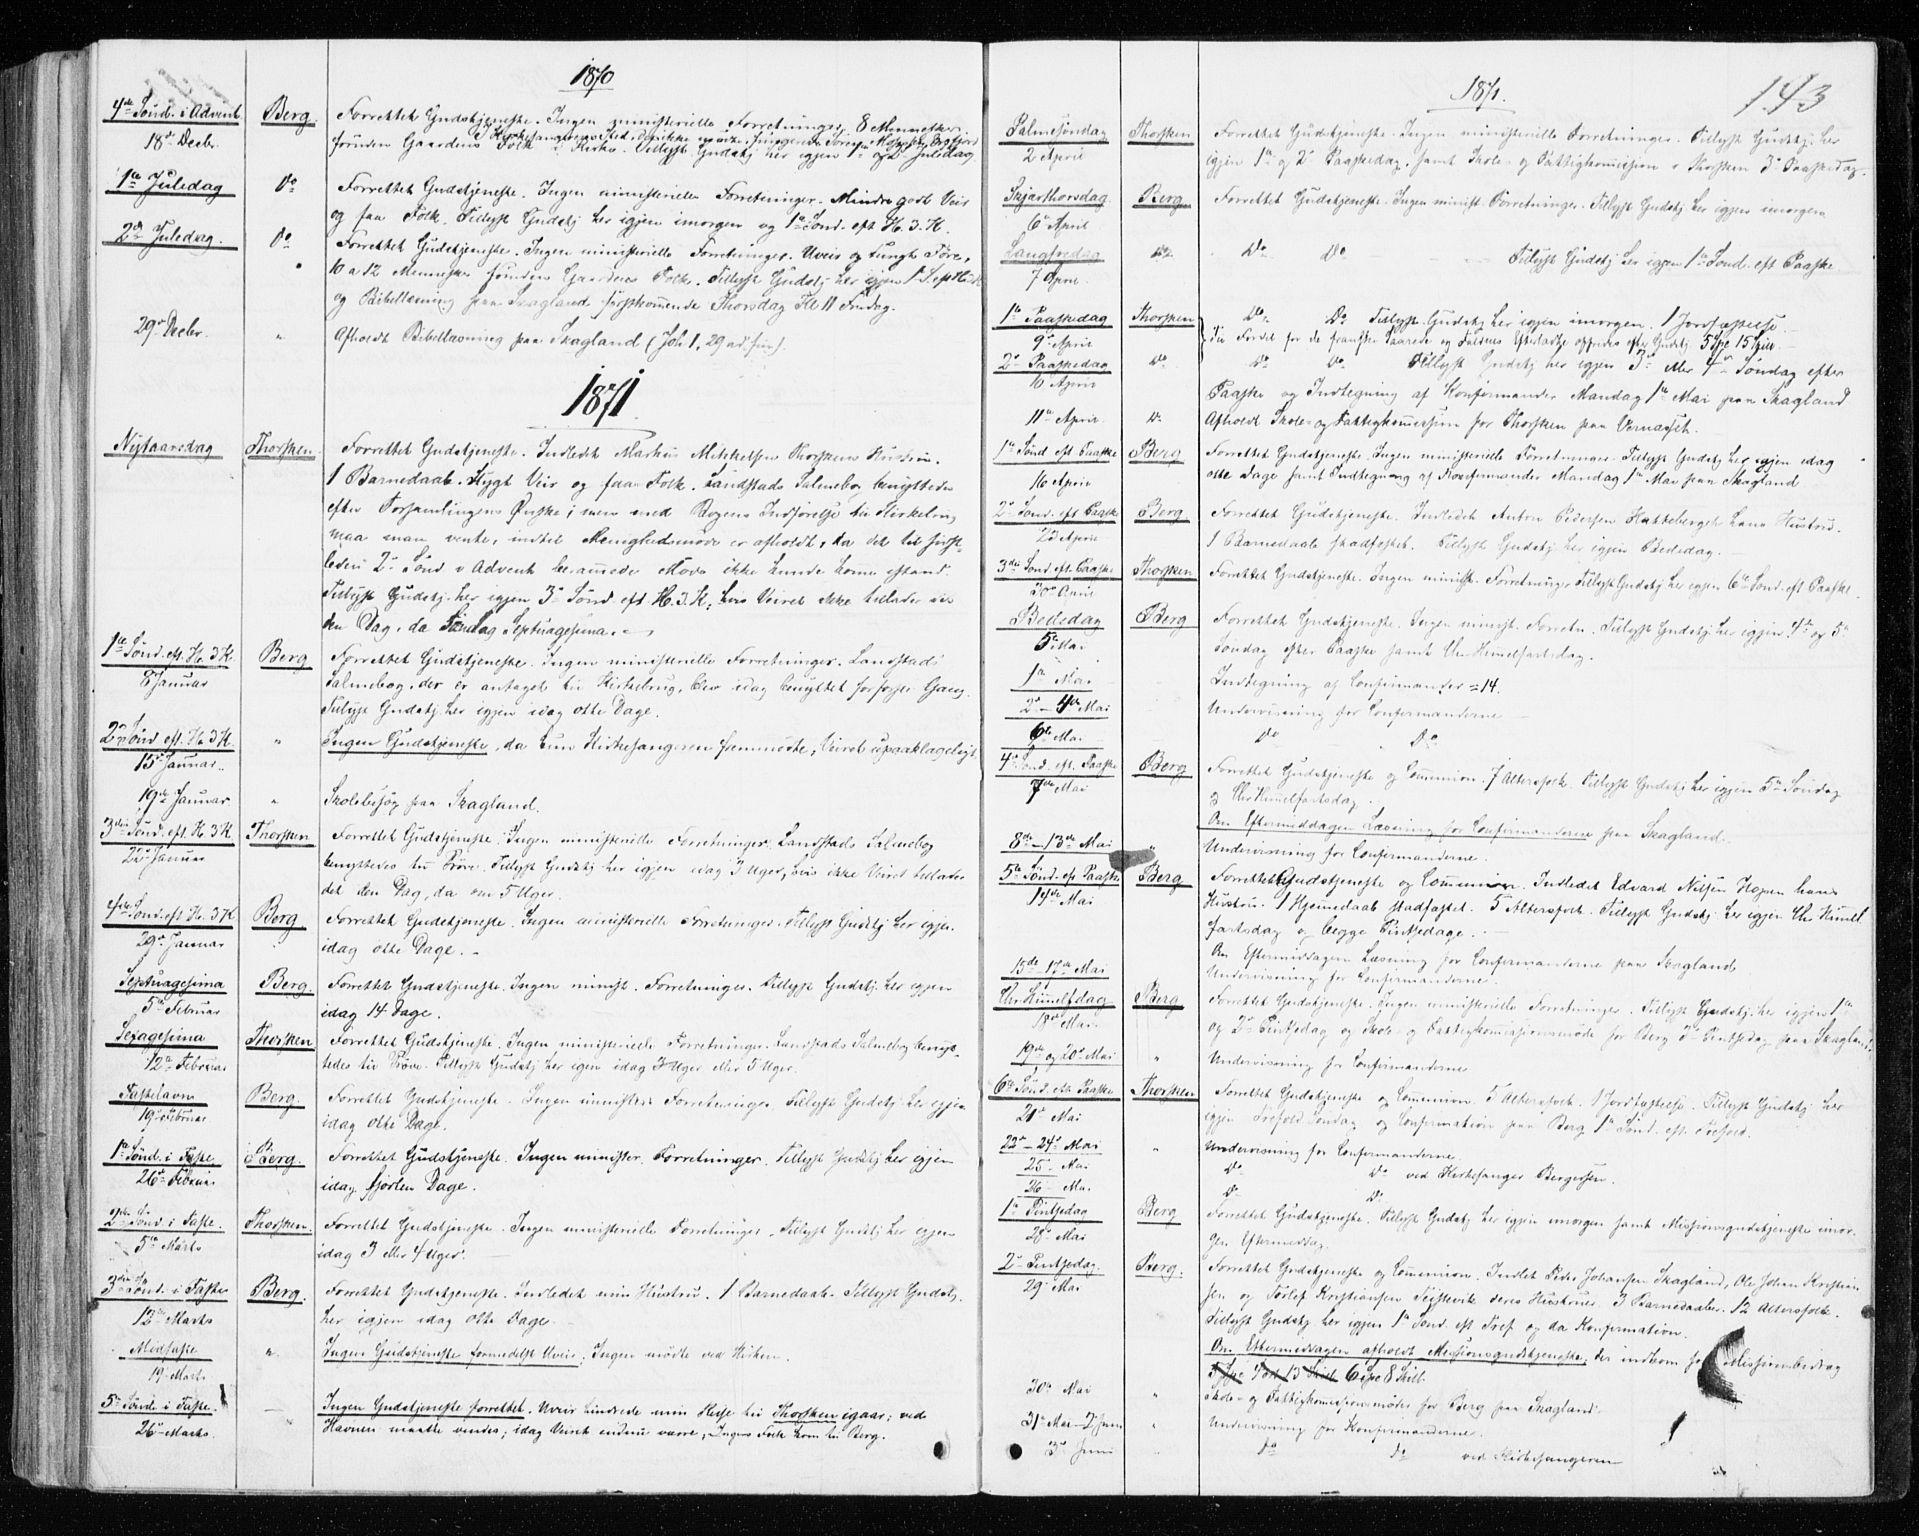 1870
4de Sønd. i Advent Berg. Forrettet Gudstjeneste. Ingen ministerielle Forretninger. 8 Mennesker
18de Decbr. foruden Gaardens Folk i Kirke. Tillyst Gudstj. her igjen 1ste og 2den Juledag
1ste Juledag Do Forrettet Gudstjeneste. Ingen ministerielle Forretninger. Mindre godt Veir
og faa Folk. Tillyst Gudstj. her igjen imorgen og 1ste Sønd. eft. H. 3. K.
2den Juledag. Do Forrettet Gudstjeneste. Ingen ministerielle Forretninger. Uveir og tungt Føre,
10 a 12 Mennesker foruden Gaardens Folk. Tillyst Gudstj. her igjen 1 S. eft. H. 3 K
og Bibellæsning paa Skagland førstkommende Thorsdag Kl 11 Formdag.
29de Decbr. " Afholdt Bibellæsning paa Skagland (Joh 1, 29 ad fin).
1871.
Nytaarsdag Thorsken. Forrettet Gudstjeneste. Indledet Markus Mikkelsen Thorskens Hustru.
1 Barnedaab. Stygt Veir og faa Folk. Landstads Salmebog benyttedes
efter Forsamlingens Ønske; men med Bogens Indførelse til Kirkebrug
maa man vente, indtil Menighedsmøde er afholdt, da det til først-
leden 2den Sønd. i Advent berammede Møde ikke kunde komme istand.
Tillyst Gudstj. her igjen 3die Sønd. eft. H. 3. K., hvis Veiret ikke tillader det
den Dag, da Søndag Septuagesima.
1ste Sønd. eft. H. 3 K. Berg Forrettet Gudstjeneste. Ingen ministerielle Forretninger. Landstads
8 Januar Salmebog, der er antaget til Kirkebrug, blev idag benyttet for første Gang.
Tillyst Gudstj. her igjen idag otte Dage.
2den Sønd. eft. H. 3 K. " Ingen Gudstjeneste, da kun Kirkesangeren fremmødte, Veiret upaaklageligt.
15de Januar.
19de Januar. " Skolebesøg paa Skagland.
3die Sønd. eft. H. 3 K. Thorsken Forrettet Gudstjeneste. Ingen ministerielle Forretninger. Landstads Salmebog
22de Januar benyttedes til Prøve. Tillyst Gudstj. her igjen idag 3 Uger, hvis ikke Veiret tillader
det den Dag, da om 5 Uger.
4de Sønd. eft H. 3 K Berg. Forrettet Gudstjeneste. Ingen ministerielle Forretninger. Tillyst Gudstj her igjen
29de Januar idag otte Dage.
Septuagesima Berg. Forrettet Gudstjeneste. Ingen minist. Forretninger. Tillyst Gudstj. her igjen
5te Februar idag 14 Dage.
Sexagesima Thorsken Forrettet Gudstjeneste. Ingen ministerielle Forretninger. Landstads Salmebog benyt-
12te Februar tedes til Prøve. Tillyst Gudstj her igjen idag 3 Uger eller 5 Uger.
Fastelavn Berg. Forrettet Gudstjeneste. Ingen minister. Forretninger. Tillyst Gudstj. her igjen
19de Februar idag otte Dage.
1ste Sønd. i Faste Berg. Forrettet Gudstjeneste. Ingen minister. Forretninger. Tillyst Gudstj her igjen
26de Februar idag fjorten Dage.
2den Sønd. i Faste. Thorsken. Forrettet Gudstjeneste. Ingen ministerielle Forretninger. Tillyst Gudstj her igjen
5te Marts idag 3 eller 4 Uger.
3die Sønd. i Faste Berg. Forrettet Gudstjeneste. Indledet min Hustru. 1 Barnedaab. Tillyst Gudstj.
12te Marts her igjen idag otte Dage.
Midfaste " Ingen Gudstjeneste formedelst Uveir; Ingen mødte ved Kirken.
19de Marts
5te Sønd. i Faste. Ingen Gudstjeneste forrettet. Uveir hindrede min Reise til Thorsken igaar; ved
26de Marts. Havnen maatte vendes; idag Veiret endnu værre, Ingen Folk kom til Berg.
1871. 143
Palmesøndag Thorsken Forrettet Gudstjeneste. Ingen ministerielle Forretninger. Tillyst Gudstj. her
2 April igjen 1ste og 2den Paaskedag, samt Skole- og Fattigkommission i Thorsken 3die Paaskedag.
Skjærthorsdag Berg. Forrettet Gudstjeneste. Ingen minist. Forretninger. Tillyst Gudstj. her igjen imorgen
6te April
Langfredag Do Do Do Tillyst Gudstj her igjen 1ste Sønd. eft Paaske
7 April.
1ste Paaskedag Thorsken Do Do Tillyst Gudstj her igjen imorgen. 1 Jordfæstelse.
9de April Til Fordel for de franske Saarede og Faldnes Efterladte offredes efter Gudstj. 5 Spe 15 Skill.
2den Paaskedag Do Do Do Tillyst Gudstj her igjen 3die eller 4de Søndag efter
10 April Paaske og Indtegning af Konfirmander Mandag 1ste Mai paa Skagland
11te April Do Afholdt Skole- og Fattigkommission for Thorsken paa Vernæsset.
1ste Sønd eft Paaske Berg Forrettet Gudstjeneste. Ingen ministerielle Forretninger. Tillyst Gudstj her igjen idag
16 April otte Dage samt Indtegning af Konfirmander Mandag 1ste Mai paa Skagland
2den Sønd. eft Paaske Berg. Forrettet Gudstjeneste. Indledet Anton Pedersen Hatteberget hans Hustru.
23 April 1 Barnedaab stadfæstet. Tillyst Gudstj her igjen Bededag.
3die Sønd. eft. Paaske Thorsken Forrettet Gudstjeneste. Ingen minist. Forretninger. Tillyst Gudstj her igjen 6te Sønd. eft Paaske.
30te April
Bededag Berg Forrettet Gudstjeneste. Ingen minist. Forretn. Tillyst Gudstj her igjen 4de og 5te
5te Mai Søndag efter Paaske samt Chr. Himmelfartsdag.
1ste Mai Indtegning af Confirmander = 14.
2den - 4de Mai Underviisning for Confirmanderne
6te Mai Do Do
4de Sønd. eft. Paaske Berg Forrettet Gudstjeneste og Communion. 7 Altersfolk. Tillyst Gudstj her igjen 5te Søndag
7de Mai og Chr. Himmelfartsdag.
Om Eftermiddagen Læsning for Confirmanderne paa Skagland.
8de - 13de Mai " Underviisning for Confirmanderne.
5te Sønd. eft Paaske Berg Forrettet Gudstjeneste og Communion. Indledet Edvard Nilsen Hopen hans
14de Mai Hustru. 1 Hjemmedaab stadfæstet. 5 Altersfolk. Tillyst Gudstj. her igjen Chr Himmel-
fartsdag og begge Pintsedage.
Om Eftermiddagen Læsning for Confirmanderne paa Skagland
15de - 17de Mai Underviisning for Confirmanderne.
Chr. Himmelfdag Berg Forrettet Gudstjeneste. Ingen ministerielle Forretninger. Tillyst Gudstj her igjen 1ste
18de Mai. og 2den Pintsedag og Skole- og Fattigkommissionsmøde for Berg 3die Pintsedag paa Skagland.
19de og 20de Mai " Underviisning for Confirmanderne
6te Sønd. eft Paaske Thorsken Forrettet Gudstjeneste og Communion. 5 Altersfolk. 1 Jordfæstelse. Tillyst Gudstj. her
21de Mai igjen Trefold. Søndag og Confirmation paa Berg 1ste Sønd. eft. Trefold.
22de - 24de Mai " Underviisning for Confirmanderne.
25de Mai Do Do ved Kirkesanger Bergersen.
26 Mai Do Do
1ste Pintsedag Berg Forrettet Gudstjeneste. Tillyst Gudstj her igjen imorgen samt Missionsgudstjeneste imor-
28de Mai gen Eftermiddag.
2den Pintsedag. Berg. Forrettet Gudstjeneste og Communion. Indledet Peder Johansen Skagland, Ole Johan Kristian-
29de Mai sen og Torlef Kristiansen Teistevik deres Hustruer. 3 Barnedaaber. 12 Altersfolk.
Tillyst Gudstj her igjen 1ste Sønd. eft Tref og da Konfirmation.
Om Eftermiddagen afholdt Missionsgudstjeneste; der indkom for Missionsbidrag
6 Spe 8 Skill.
30te Mai " Skole- og Fattigkommissionsmøde for Berg paa Skagland.
31te Mai - 2 Juni " Underviisning for Konfirmanderne.
3die Juni " Do Do ved Kirkesangeren